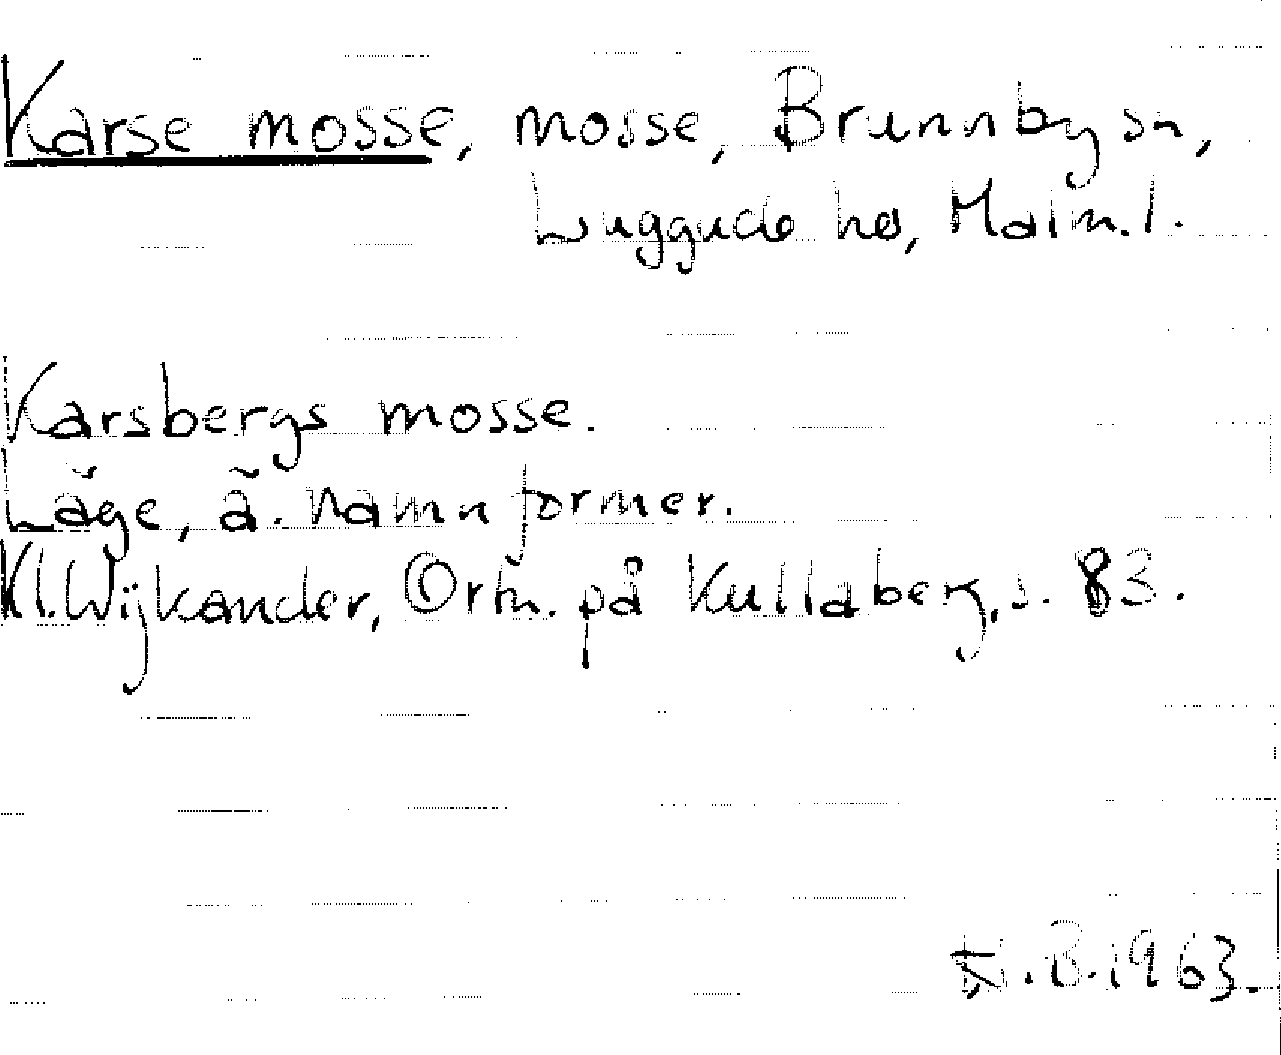 Karse mosse, mosse, Brunnby sn,
Luggude hd, Malm. l.
Karsbergs mosse.
Läge, ä. namnformer.
Kl. Wijkander, Ortn. på Kullaberg, s. 83.
B. 1963.